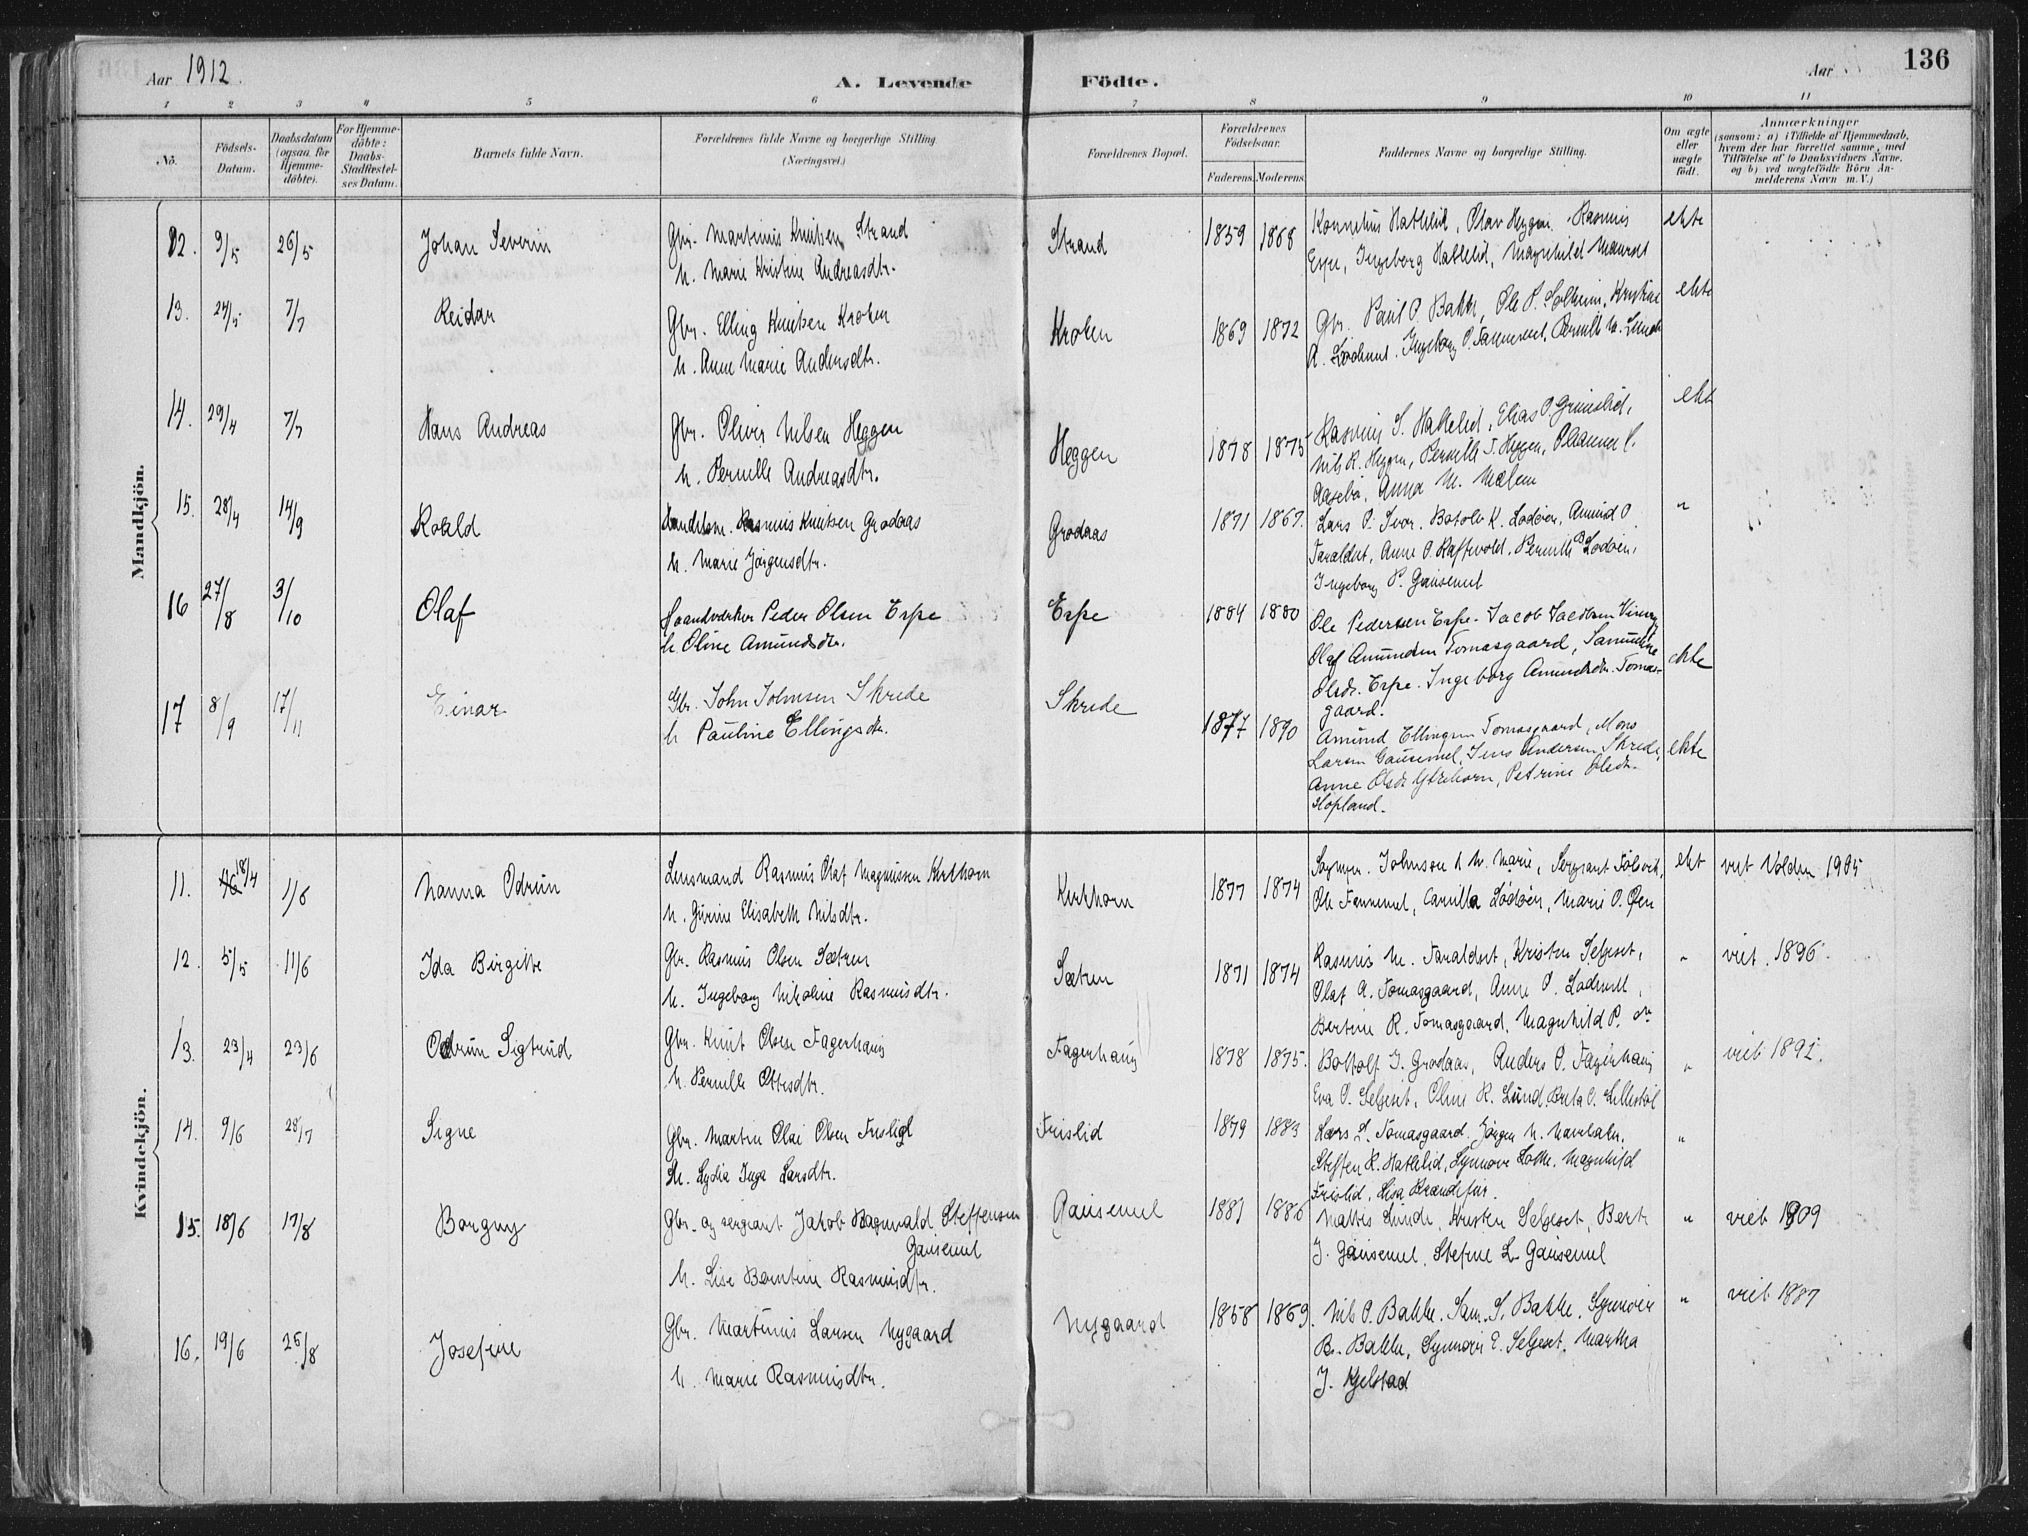 136
Aar 1912.
A. Levende Födte.
Aar
1 2 3 4 5 6 7 8 9 10 11
No.
Födsels-Datum.
Daabsdatum (ogsaa for Hjemme-döbte).
For Hjemme-döbte: Daabs-Stadfæstel-ses Datum.
Barnets fulde Navn.
Forældrenes fulde Navne og borgerlige Stilling (Næringsvei.)
Forældrenes Bopæl.
Forældrenes Födselsaar.
Faderens. Moderens.
Faddernes Navne og borgerlige Stilling.
Om ægte eller uægte födt.
Anmærkninger
(saasom: a) i Tilfælde af Hjemmedaab, hvem der har forrettet samme, med Tilföielse af to Daabsvidners Navne, og b) ved uægtefödte Börn An-melderens Navn m. V.)
Mandkjön.
12. 9/5 26/5 Johan Severin
Gbr. Martinus Knutsen Strand
h. Marie Kristine Andreasdtr.
Strand 1859 1868
Kornelius Hatlelid, Olav Heggen, Rasmus
Erpe, Ingeborg Hatlelid, Magnhild
ekte
13. 24/5 7/7 Reidar
Gbr. Elling Knutsen Kroken
h. Anne Marie Andersdtr.
Kroken 1869 1872
Gbr. Paul P. Bakke, Ole P. Solheim, Kristine
A. Lødemel, Ingeborg O. Tannemel, Pernille
ekte
14. 29/4 7/7 Hans Andreas
Gbr. Oliver Nilsen Heggen
h. Pernille Andreasdtr.
Heggen 1878 1875
Rasmus S. Hatlelid, Elias O. Grimslid,
Nils R. Heggen, Pernille J. Heggen,
Aasebø, Anna M.
ekte
15. 28/4 14/9 Roald
Handelsm. Rasmus Knutsen Grodaas
h. Marie Jørgensdtr.
Grodaas 1871 1867.
Lars P. Botolv K. Lødøen, Amund O.
Taraldset, Anne O. Raftevold, Pernille Lødøen,
Ingeborg P. Gausemel
"
16 27/8 3/10 Olaf
Haandverker Peder Olsen Erpe
h Oline Amundsdtr.
Erpe 1884 1880
Ole Pedersen Erpe. Jacob Jacobsen
Olaf Amunden Tomasgaard,
Olsdr. Erpe. Ingeborg Amundsdtr. Tomas-
gaard.
ekte
17 8/9 17/11 Einar
Gbr. John Johnsen Skrede
h Pauline Ellingsdtr.
Skrede 1877 1890
Amund Ellingsen Tomasgaard, Mons
Larsen Gausemel, Jens Andersen Skrede,
Anne Olsdr Ytrehorn, Petrine Olsdtr.
Hopland.
ekte
Kvindekjön.
11. 18/4 1/6 Nanna Odrun
Lensmand Rasmus Olaf Magnussen Kirkhorn
h. Gurine Elisabeth Nilsdtr.
Kirkhorn 1877 1874
Johnson & h. Marie, Sergeant
Ole Tannemel, Camilla Lødøen, Marie O. Øen
ekt
viet Volden 1905
12. 5/5 11/6 Ida Birgitte
Gbr. Rasmus Olsen Sætren
h. Ingeborg Nikoline Rasmusdtr.
Sætren 1871 1874
Rasmus M. Taraldset, Kristen Seljeset,
Olaf A. Tomasgaard, Anne P. Lødemel,
Bertine R. Tomasgaard, Magnhild P. do
"
viet. 1896.
13. 23/4 23/6 Odrun Sigtrud
Gbr. Knut Olsen Fagerhaug
h. Pernille Ottesdtr.
Fagerhaug 1878 1875.
Boltolf J. Grodaas, Anders O. Fagerhaug
Eva O. Seljeset, Oline R. Lund, Berta O.
"
14. 9/6 28/7 Signe
Gbr. Martin Olai Olsen Frislid
h. Lydia Inga Larsdtr.
Frislid 1879 1883
Lars L. Tomasgaard. Jørgen N. Navelsaker.
Steffen K. Hatlelid, Synnøve Lothe, Magnhild
Frislid, Lisa
"
15. 18/6 17/8 Borgny
Gbr. og sergeant Jakob Ragnvald Steffensen
Gausemel
h. Lise Berntine Rasmusdtr.
Gausemel 1881 1886
Mattis Lunde, Kristen Seljeset, Berte
J. Gausemel, Stefine L. Gausemel
"
viet 1909
16. 19/6 25/8 Josefine
Gbr. Martinus Larsen Nygaard
h. Marie Rasmusdtr.
Nygaard 1858 1869.
Nils O. Bakke. Sam. S. Bakke. Synnøve
Br. Bakke, Synnøve E. Seljeset, Martha
J. Kjelstad
"
viet 1887